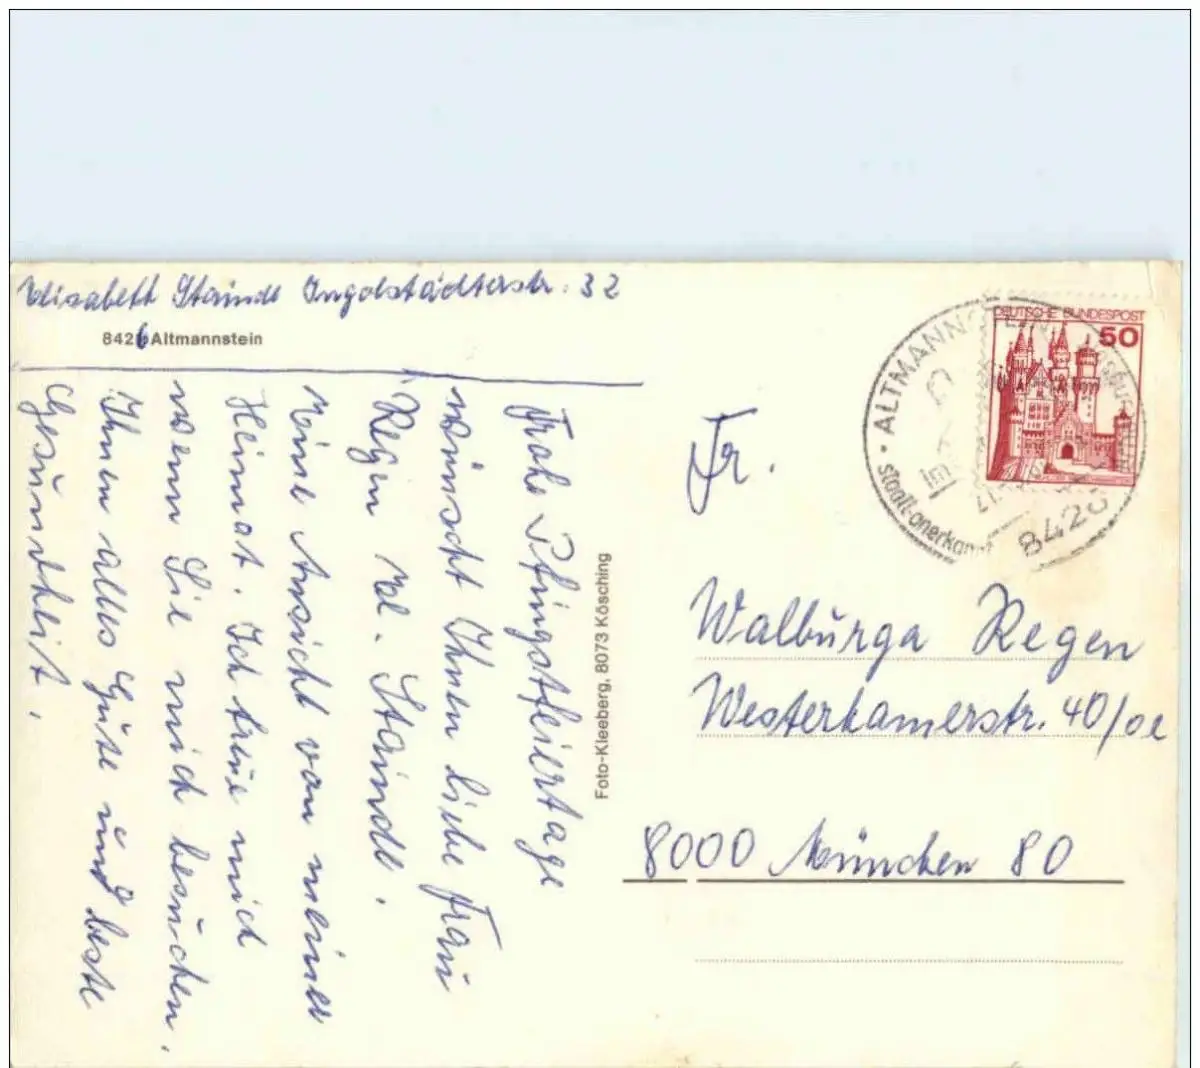 Elisabeth Staindl Ingolstädterstr. 32
8426 Altmannstein
Frohe Pfingstfeiertage
wünscht Ihnen liebe Frau
Regen El. Staindl.
Eine Ansicht von meiner
Heimat. Ich freue mich
wenn Sie mich besuchen.
Ihnen alles Gute und beste
Gesundheit.
Foto-Kleeberg, 8073 Kösching
DEUTSCHE BUNDESPOST
50
ALTMANN
Im
staatl. anerkannt
842
Fr.
Walburga Regen
Westerhamerstr. 40/oe
8000 München 80